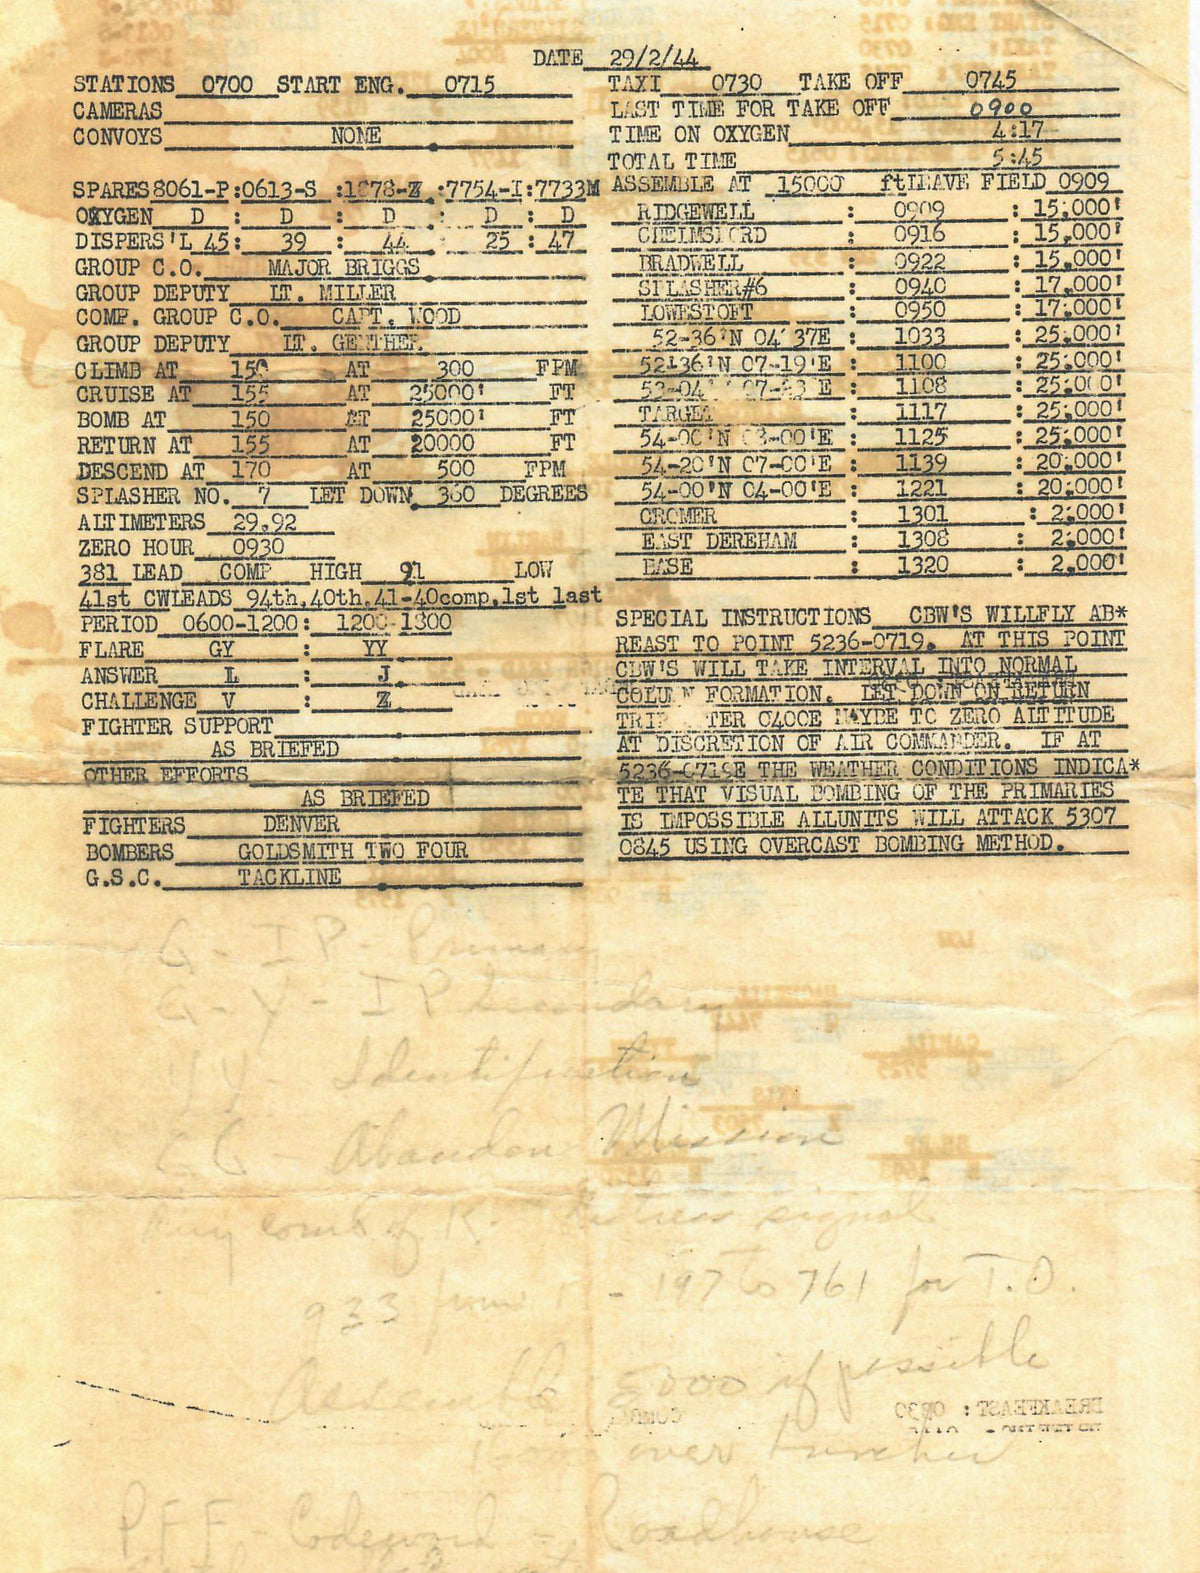 DATE 29/2/44
STATIONS 0700 START ENG. 0715
CAMERAS
CONVOYS NONE
SPARES 8061-P:0613-S :1878-Z :7754-I:7733M
OXYGEN D : D : D : D : D
DISPERS'L 45: 39 : 44 : 25 : 47
GROUP C.O. MAJOR BRIGGS
GROUP DEPUTY LT. MILLER
COMP. GROUP C.O. CAPT. WOOD
GROUP DEPUTY LT. GENTHER
CLIMB AT 150 AT 300 FPM
CRUISE AT 155 AT 25000' FT
BOMB AT 150 AT 25000' FT
RETURN AT 155 AT 20000 FT
DESCEND AT 170 AT 500 FPM
SPLASHER NO. 7 LET DOWN 360 DEGREES
ALTIMETERS 29.92
ZERO HOUR 0930
381 LEAD COMP HIGH 91 LOW
41st CWLEADS 94th,40th,41-40comp,1st last
PERIOD 0600-1200: 1200-1800
FLARE GY : YY
ANSWER L : J
CHALLENGE V : Z
FIGHTER SUPPORT
AS BRIEFED
OTHER EFFORTS
AS BRIEFED
FIGHTERS DENVER
BOMBERS GOLDSMITH TWO FOUR
G.S.C. TACKLINE
TAXI 0730 TAKE OFF 0745
LAST TIME FOR TAKE OFF 0900
TIME ON OXYGEN 4:17
TOTAL TIME 5:45
ASSEMBLE AT 15000 ftLEAVE FIELD 0909
RIDGEWELL : 0909 : 15,000'
CHELMSFORD : 0916 : 15,000'
BRADWELL : 0922 : 15,000'
SPLASHER#6 : 0940 : 17,000'
LOWESTOFT : 0950 : 17,000'
52-36'N 04 37E : 1033 : 25,000'
52-36'N 07-19'E : 1100 : 25,000'
07-23'E : 1108 : 25,000'
TARGET : 1117 : 25,000'
54-00'N 08-00'E : 1125 : 25,000'
54-20'N 07-00'E : 1139 : 20,000'
54-00'N 04-00'E : 1221 : 20,000'
CROMER : 1301 : 2,000'
EAST DEREHAM : 1308 : 2,000'
BASE : 1320 : 2,000'
SPECIAL INSTRUCTIONS CBW'S WILLFLY AB*
REAST TO POINT 5236-0719. AT THIS POINT
CBW'S WILL TAKE INTERVAL INTO NORMAL
COLUMN FORMATION. LET DOWN ON RETURN
TRIP AFTER 0400E MAYBE TO ZERO ALTITUDE
AT DISCRETION OF AIR COMMANDER. IF AT
5236-0719E THE WEATHER CONDITIONS INDICA*
TE THAT VISUAL BOMBING OF THE PRIMARIES
IS IMPOSSIBLE ALLUNITS WILL ATTACK 5307
0845 USING OVERCAST BOMBING METHOD.
G - IP - Primary
G - Y - IP Secondary
YY - Identification
GG - Abandon Mission
Any comb of K - Distress signal
933 from - 197 to 761 for T.O.
Assemble 5000 if possible
over
PFF - Codeword - Roadhouse
BREAKFEAST: 0830